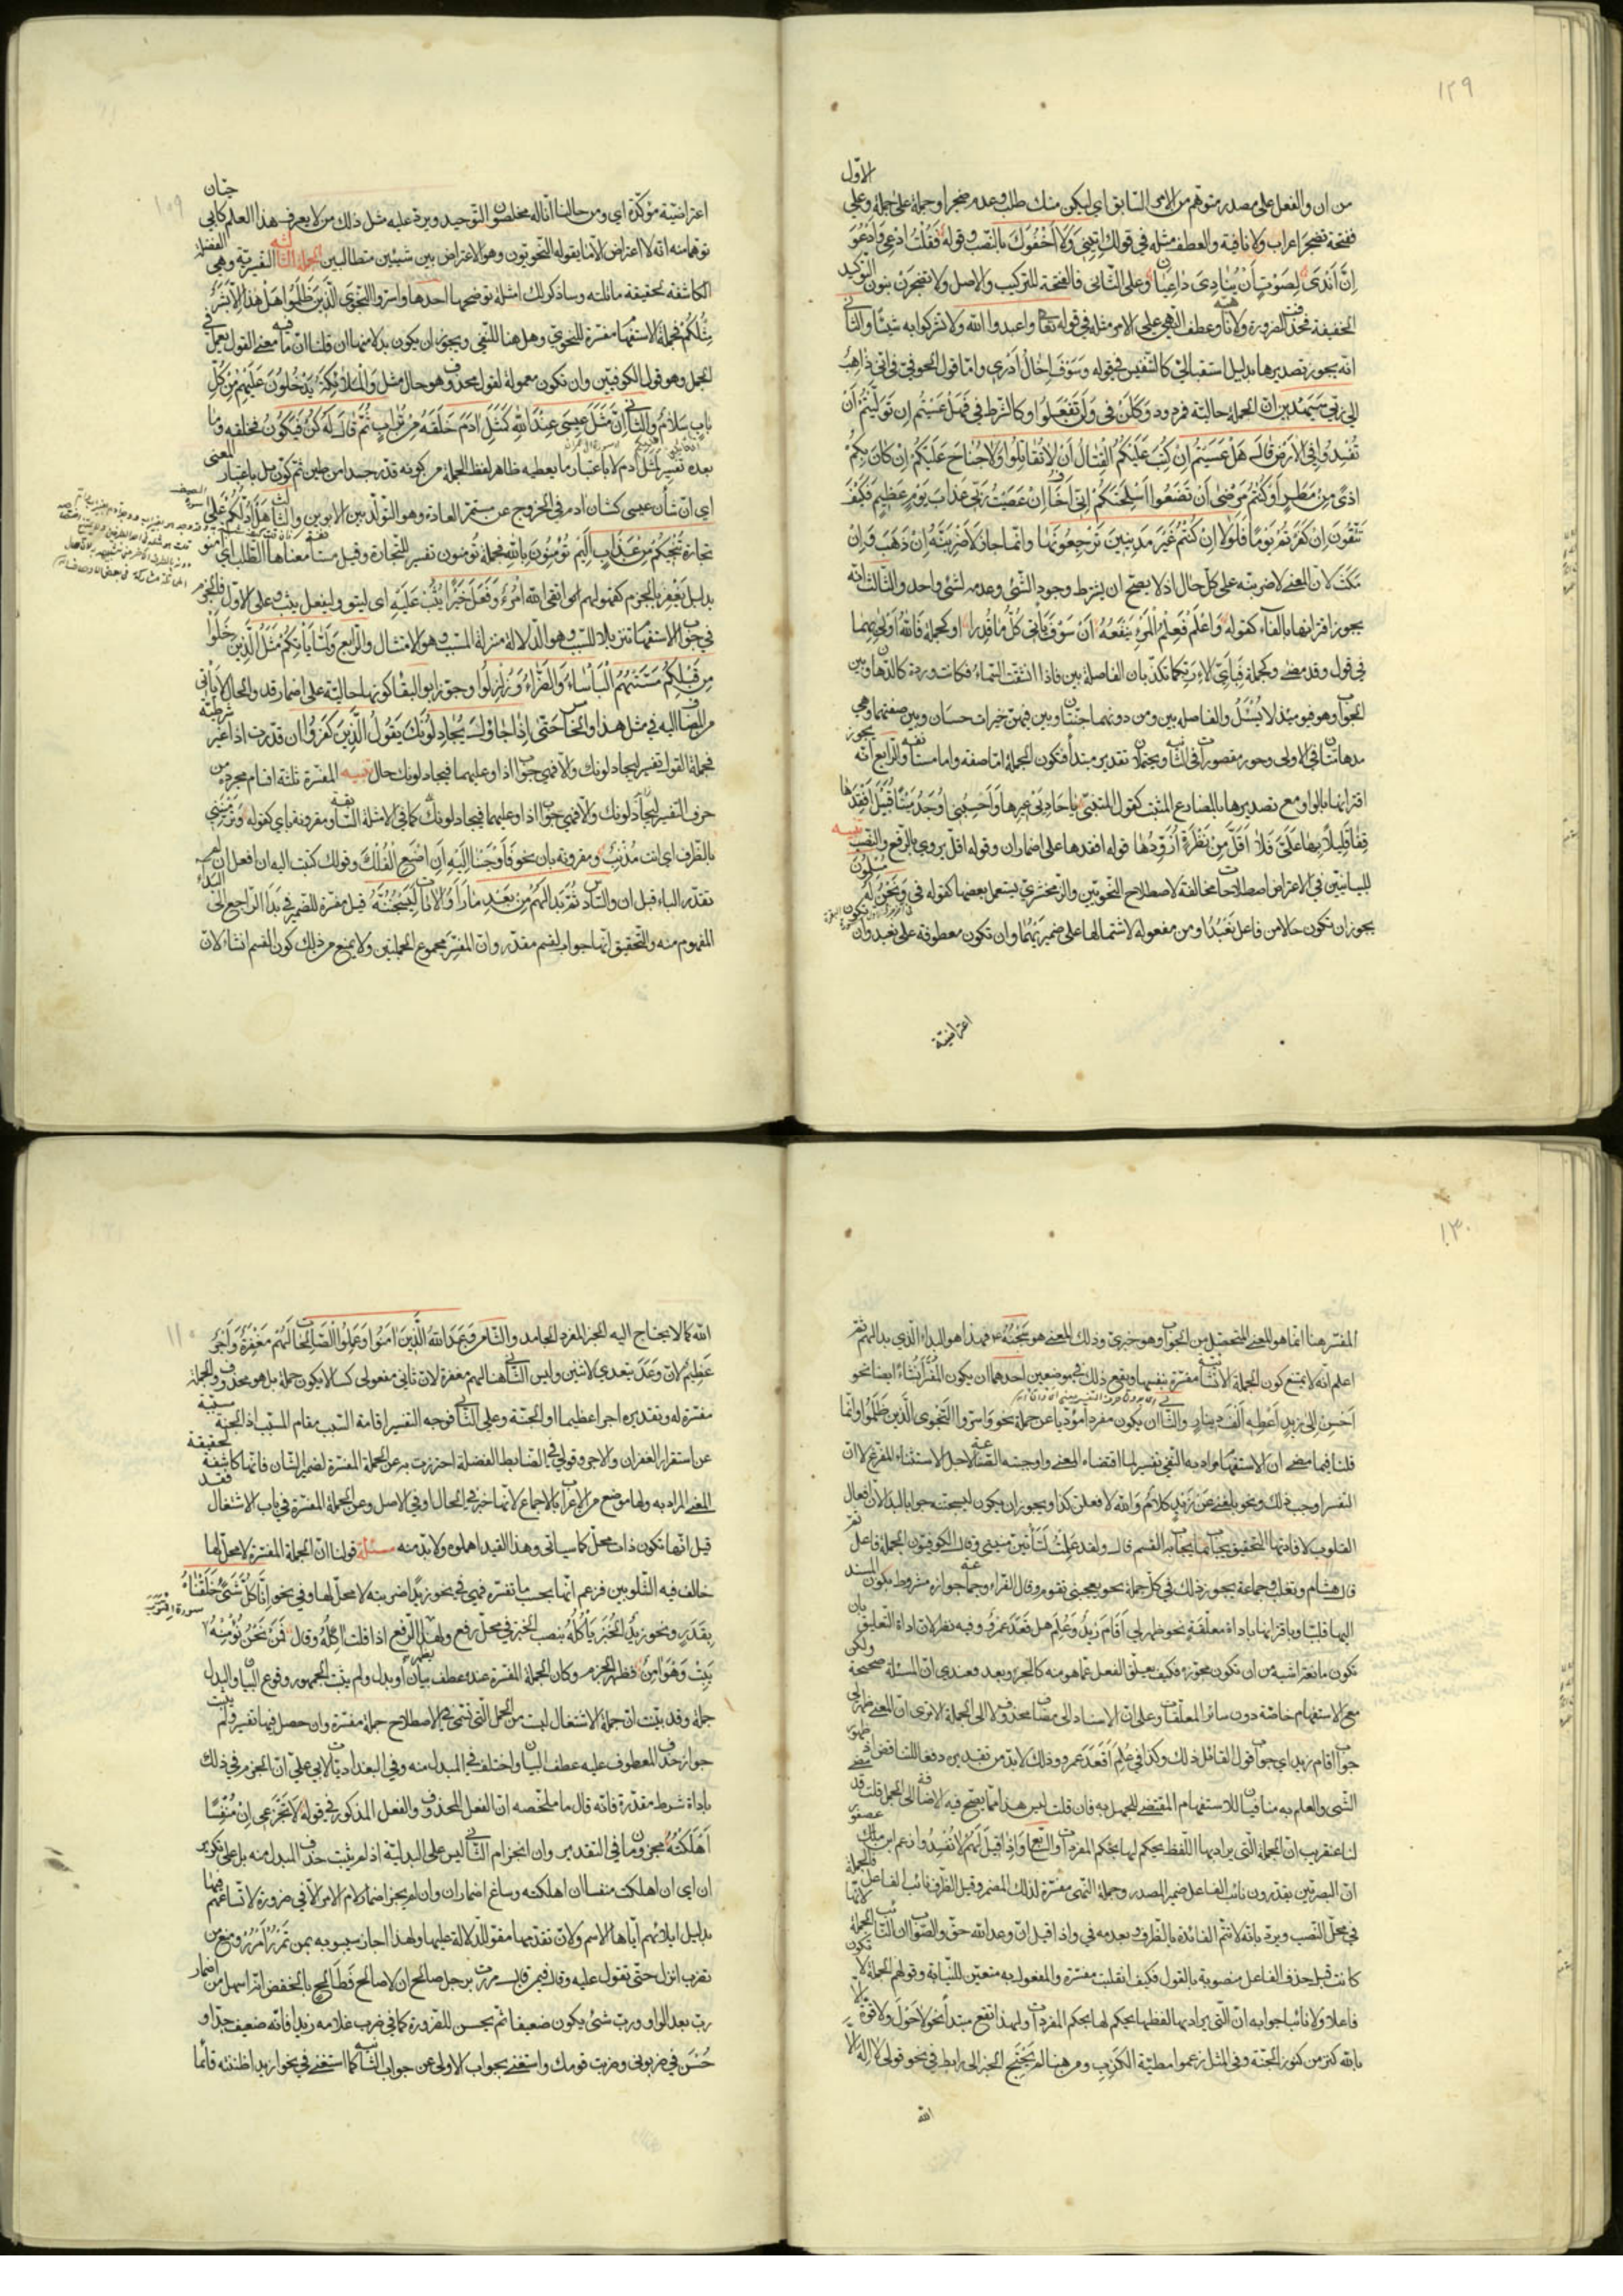 ١٢٩
الاول
من ان والفعل على مصدر متوهم من الامر السابق اى ليكن منك طلب وعدم ضجر او جملة على جملة وعلى
ففتحة تضجر اعراب ولا نافية والعطف مثله في قولك ائتنى ولا اجفوك بالنصب وقوله فَقُلْتُ ادْعِى وَاَدْعُوَ
اِنَّ اَنْدَى لِصَوْتٍ اَنْ يُنَادِىَ دَاعِيَانِ وعلى الثانى فالفتحة للتركيب والاصل ولا تضجرن بنون التوكيد
الخفيفة فحذفت للضرورة ولا ناهية وعطف النهى على الامر مثله في قوله تعالى واعبدوا الله ولا تشركوا به شيئا والثانى
انه يجوز تصديرها بدليل استقبالى كالتنفيس في قوله وَسَوْفَ اِخَالُ اَدْرِى واما قول الحوفى في انى ذَاهِبٌ
الى ربى سَيَهْدِينِ ان الجملة حالية فمردود وكَلَنْ في وَلَنْ تَفْعَلُوا وكالشرط في فَهَلْ عَسَيْتُمْ اِنْ تَوَلَّيْتُمْ اَنْ
تُفْسِدُوا فِى الْاَرْضِ قَالَ هَلْ عَسَيْتُمْ اِنْ كُتِبَ عَلَيْكُمُ الْقِتَالُ اَنْ لَا تُقَاتِلُوا وَلَا جُنَاحَ عَلَيْكُمْ اِنْ كَانَ بِكُمْ
اَذًى مِنْ مَطَرٍ اَوْ كُنْتُمْ مَرْضَى اَنْ تَضَعُوا اَسْلِحَتَكُمْ اِنِّى اَخَافُ اِنْ عَصَيْتُ رَبِّى عَذَابَ يَوْمٍ عَظِيمٍ فَكَيْفَ
تَتَّقُونَ اِنْ كَفَرْتُمْ يَوْمًا فَلَوْلَا اِنْ كُنْتُمْ غَيْرَ مَدِينِينَ تَرْجِعُونَهَا وانما جاز لَاَضْرِبَنَّهُ اِنْ ذَهَبَ وَاِنْ
مَكَثَ لان المعنى لاضربنه على كل حال اذ لا يصح ان يشترط وجود الشئ وعدمه لشئ واحد والثالث انه
يجوز اقترانها بالفاء كقوله وَاعْلَمْ فَعِلْمُ الْمَرْءِ يَنْفَعُهُ اَنْ سَوْفَ يَأْتِى كُلُّ مَا قُدِرَا او كجملة فَاللهُ اَوْلَى بِهِمَا
في قول وقد مضى وكجملة فَبِاَىِّ آلَاءِ رَبِّكُمَا تكذبان الفاصلة بين فاذا انشقت السَّمَاءُ فكانت وردة كالدهان وبين
الجواب وهو فيومئذ لا يُسْئَلُ والفاصلة بين ومن دونهما جنتان وبين فيهن خيرات حسان وبين صفتهما وهى
مدهامتان في الاولى وحور مقصورات في الثانية ويحتملان تقدير مبتدأ فتكون الجملة اما صفة واما مستانفة والرابع انه يجوز
اقترانها بالواو مع تصديرها بالمضارع المثبت كقول المتنبى يَا حَادِيَىْ عِيرِهَا وَاَحْسِبُنِى اُوجَدُ مَيْتًا قُبَيْلَ اَفْقِدُهَا
قِفَا قَلِيلًا بِهَا عَلَىَّ فَلَا اَقَلَّ مِنْ نَظْرَةٍ اُزَوَّدُهَا قوله افقدها على اضمار ان وقوله اقل يروى بالرفع والنصب تنبيه
للبيانيين في الاعتراض اصطلاحات مخالفة لاصطلاح النحويين والزمخشرى يستعمل بعضها كقوله في وَنَحْنُ لَهُ مُسْلِمُونَ
يجوز ان تكون حالا من فاعل نَعْبُدُ او من مفعوله لاشتمالها على ضميريهما وان تكون معطوفة على نعبد وان تكون
اعتراضية
١٠٩
اعتراضية مؤكدة اى ومن حالنا انا له مخلصون التوحيد ويرد عليه مثل ذلك من لا يعرف هذا العلم كابى حيان
توهما منه انه لا اعتراض الا ما يقوله النحويون وهو الاعتراض بين شيئين متطالبين الجملة الثالثة التفسيرية وهى الفضلة
الكاشفة لحقيقة ما تليه وساذكر لك امثلة توضحها احدها واسروا النَّجْوَى الَّذِينَ ظَلَمُوا هَلْ هذا اِلَّا بَشَرٌ
مِثْلُكُمْ فجملة الاستفهام مفسرة للنجوى وهل هنا للنفى ويجوز ان يكون بدلا منها ان قلنا ان ما فيه معنى القول يعمل في
الجمل وهو قول الكوفيين وان تكون معمولة لقول محذوف وهو حال مثل وَالْمَلَائِكَةُ يَدْخُلُونَ عَلَيْهِمْ مِنْ كُلِّ
بَابٍ سَلَامٌ والثانى اِنَّ مَثَلَ عِيسَى عِنْدَ اللهِ كَمَثَلِ آدَمَ خَلَقَهُ مِنْ تُرَابٍ ثُمَّ قَالَ لَهُ كُنْ فَيَكُونُ فخلقه وما
بعده تفسير لمثل آدم لا باعتبار ما يعطيه ظاهر لفظ الجملة من كونه قدر جسدا من طين ثم كون بل باعتبار المعنى
اى ان شأن عيسى كشان ادم في الخروج عن مستمر العادة وهو التولد بين الابوين والثالث هَلْ اَدُلُّكُمْ عَلَى
تجارة تُنْجِيكُمْ مِنْ عَذَابٍ اَلِيمٍ تُؤْمِنُونَ بِاللهِ فجملة تومنون تفسير للتجارة وقيل مستانفة معناها الطلب اى امنوا
بدليل يَغْفِرْ بالجزم كقولهم اتقى الله امْرُءٌ وَفَعَلَ خَيْرًا يُثَبْ عَلَيْهِ اى ليتق وليفعل يثب وعلى الاول فالجزم
في جواب الاستفهام تنزيلا للسبب وهو الدلالة منزلة المسبب وهو الامتثال والرابع وَلَمَّا يَأْتِكُمْ مَثَلُ الَّذِينَ خَلَوْا
مِنْ قَبْلِكُمْ مَسَّتْهُمُ الْبَأْسَاءُ وَالضَّرَّاءُ وَزُلْزِلُوا وجوز ابو البقاء كونها حالية على اضمار قد والحال لا يأتى
من المضاف اليه في مثل هذا والخامس حَتَّى اِذَا جَاؤُكَ يُجَادِلُونَكَ يَقُولُ الَّذِينَ كَفَرُوا ان قدرت اذا غير شرطية
فجملة القول تفسير ليجادلونك والا فهى جواب اذا وعليهما فيجادلونك حال تنبيه المفسرة ثلثة اقسام مجردة من
حرف التفسير كما في الامثلة السابقة ومقرونة باى كقوله وَتَرْمِينَنِى
بالطَّرْفِ اى انت مُذْنِبٌ ومقرونة بان نحو فَاَوْحَيْنَا اِلَيْهِ اَنِ اصْنَعِ الْفُلْكَ وقولك كتبت اليه ان افعل ان لم
تقدر الباء قبل ان والسادس ثُمَّ بَدَا لَهُمْ مِنْ بَعْدِ مَا رَاَوُا الْآيَاتِ لَيَسْجُنُنَّهُ قيل مفسرة للضمير في بَدَا الراجع الى البداء
المفهوم منه والتحقيق انها جواب لقسم مقدر وان المفسر مجموع الجملتين ولا يمنع من ذلك كون القسم انشاء لان
١٣٠
المفسر هنا انما هو المعنى المتحصل من الجواب وهو خبرى وذلك المعنى هو سَجْنُهُ فهذا هو البداء الذى بدا لهم ثم
اعلم انه لا يمتنع كون الجملة الانشائية مفسرة بنفسها ويقع ذلك في موضعين احدهما ان يكون المفسَّر انشاء ايضا نحو
اَحْسِنْ اِلَى زيد اَعْطِهِ اَلْفَ دينار والثانى ان يكون مفردا مؤديا عن جملة نحو وَاَسَرُّوا النَّجْوَى الَّذِينَ ظَلَمُوا وانما
قلنا فيما مضى ان الاستفهام مراد به النفى تفسيرا لما اقتضاه المعنى واوجبته الصناعة لاجل الاستثناء المفرغ لا ان
التفسير اوجب ذلك ونحو بلغنى عن زيد كلام وَاللهِ لافعلن كذا ويجوز ان يكون ليسجننه جوابا لبدا لان افعال
القلوب لافادتها التحقيق يجاب بما يجاب به القسم قال ولقد علمتُ لَتَأْتِيَنَّ منيتى وقال الكوفيون الجملة فاعل ثم
قال هشام وثعلب وجماعة يجوز ذلك في كل جملة نحو يعجبنى تقوم وقال الفراء وجماعة جوازه مشروط بكون المسند
اليها قلبيا وباقترانها باداة معلقة نحو ظهر لى اَقَامَ زيدٌ وَعُلِمَ هل قَعَدَ عَمْرو وفيه نظر لان اداة التعليق بان
تكون مانعة اشبه من ان تكون مجوزة فكيف يعلق الفعل عما هو منه كالجزء وبعد فعندى ان المسئلة صحيحة ولكن
مع الاستفهام خاصة دون سائر المعلقات وعلى ان الاسناد الى مضاف محذوف لا الى الجملة الا ترى ان المعنى ظهر لى
جواب اقام زيد اى جواب قول القائل ذلك وكذا في عُلِمَ اَقَعَدَ عمرو وذلك لا بد من تقديره دفعا للتناقض اذ ظهور
الشى والعلم به منافيان للاستفهام المقتضى للجهل به فان قلت ليس هذا مما يصح فيه الاضافة الى الجمل قلت قد مضى
لنا عن قريب ان الجملة التى يراد بها اللفظ يحكم لها بحكم المفردات والسابع وَاِذَا قِيلَ لَهُمْ لَا تُفْسِدُوا زعم ابن عصفور
ان البصريين يقدرون نائب الفاعل ضمير المصدر وجملة النهى مفسرة لذلك المضمر وقيل الظرف نائب الفاعل فالجملة
في محل النصب ويرد بانه لا تتم الفائدة بالظرف وبعدمه في واذا قيل ان وعد الله حق والصواب ان النائب الجملة لانها
كانت قبل حذف الفاعل منصوبة بالقول فكيف انقلبت مفسرة والمفعول به متعين للنيابة وقولهم الجملة لا تكون
فاعلا ولا نائبا جوابه ان التى يراد بها لفظها يحكم لها بحكم المفردات ولهذا تقع مبتدأ نحو لَا حَوْلَ وَلَا قُوَّةَ الا
بالله كنز من كنوز الجنة وفي المثل زعموا مطية الكذب ومن هنا لم يَحْتَجِ الخبر الى رابط في نحو قولى لا اله الا
الله
١١٠
الله كما لا يحتاج اليه الخبر المفرد الجامد والثامن وَعَدَ اللهُ الَّذِينَ آمَنُوا وَعَمِلُوا الصَّالِحَاتِ لَهُمْ مَغْفِرَةٌ وَاَجْرٌ
عَظِيمٌ لان وَعَدَ يتعدى لاثنين وليس الثانى هنا لهم مغفرة لان ثانى مفعولى كسا لا يكون جملة بل هو محذوف والجملة
مفسرة له وتقديره اجرا عظيما او الجنة وعلى الثانى فوجه التفسير اقامة السبب مقام المسبب اذ الجنة مسببة
عن استقرار الغفران والاجر وقولى في الضابط الفضلة احترزت به عن الجملة المفسرة لضمير الشان فانها كاشفة لحقيقة
المعنى المراد به ولها موضع من الاعراب بالاجماع لانها خبر في الحال او في الاصل وعن الجملة المفسرة في باب الاشتغال فقد
قيل انها تكون ذات محل كما سياتى وهذا القيد اهملوه ولا بد منه مسئلة قولنا ان الجملة المفسرة لا محل لها
خالف فيه الشلوبين فزعم انها بحسب ما تفسره فهى في نحو زيدًا ضربته لا محل لها وفي نحو اِنَّا كُلَّ شَىْءٍ خَلَقْنَاهُ
بِقَدَرٍ ونحو زيدٌ الْخُبْزَ يَأْكُلُهُ بنصب الخبز في محل رفع ولهذا يظهر الرفع اذا قلت آكِلُهُ وقال فَمَنْ نَحْنُ نُؤْمِنْهُ
يَبِتْ وَهْوَ آمِنٌ فظهر الجزم وكان الجملة المفسرة عنده عطف بيان او بدل ولم يثبت الجمهور وقوع البيان والبدل
جملة وقد بينت ان جملة الاشتغال ليست من الجمل التى تسمى في الاصطلاح جملة مفسرة وان حصل فيها تفسير ولم يثبت
جواز حذف المعطوف عليه عطف البيان واختلف في المبدل منه وفي البغداديات لابى على ان الجزم في ذلك
باداة شرط مقدرة فانه قال ما ملخصه ان الفعل المحذوف والفعل المذكور في قوله لا تَجْزَعِى اِنْ مُنْفِسًا
اَهْلَكْتُهُ مجزومان في التقدير وان انجزام الثانى ليس على البدلية اذ لم يثبت حذف المبدل منه بل على تكرير
ان اى ان اهلكت منفسا ان اهلكته وساغ اضمار ان وان لم يجز اضمار لام الامر الا في ضرورة لاتساعهم فيها
بدليل ايلائهم اياها الاسم ولان تقدمها مقو للدلالة عليها ولهذا اجاز سيبويه بمن تَمْرُرْ اَمْرُرْ ومنع من
تضرب انزل حتى تقول عليه وقال فيمن قال مررت برجل صالح ان لا صالح فَطَالِحٍ بالخفض انه اسهل من اضمار
رب بعد الواو ورب شئ يكون ضعيفا ثم يحسن للضرورة كما في ضرب غلامه زيدا فانه ضعيف جدا و
حَسُنَ في ضربونى وضربت قومك واستغنى بجواب الاولى عن جواب الثانية كما استغنى في نحو ازيدا ظننته قائما